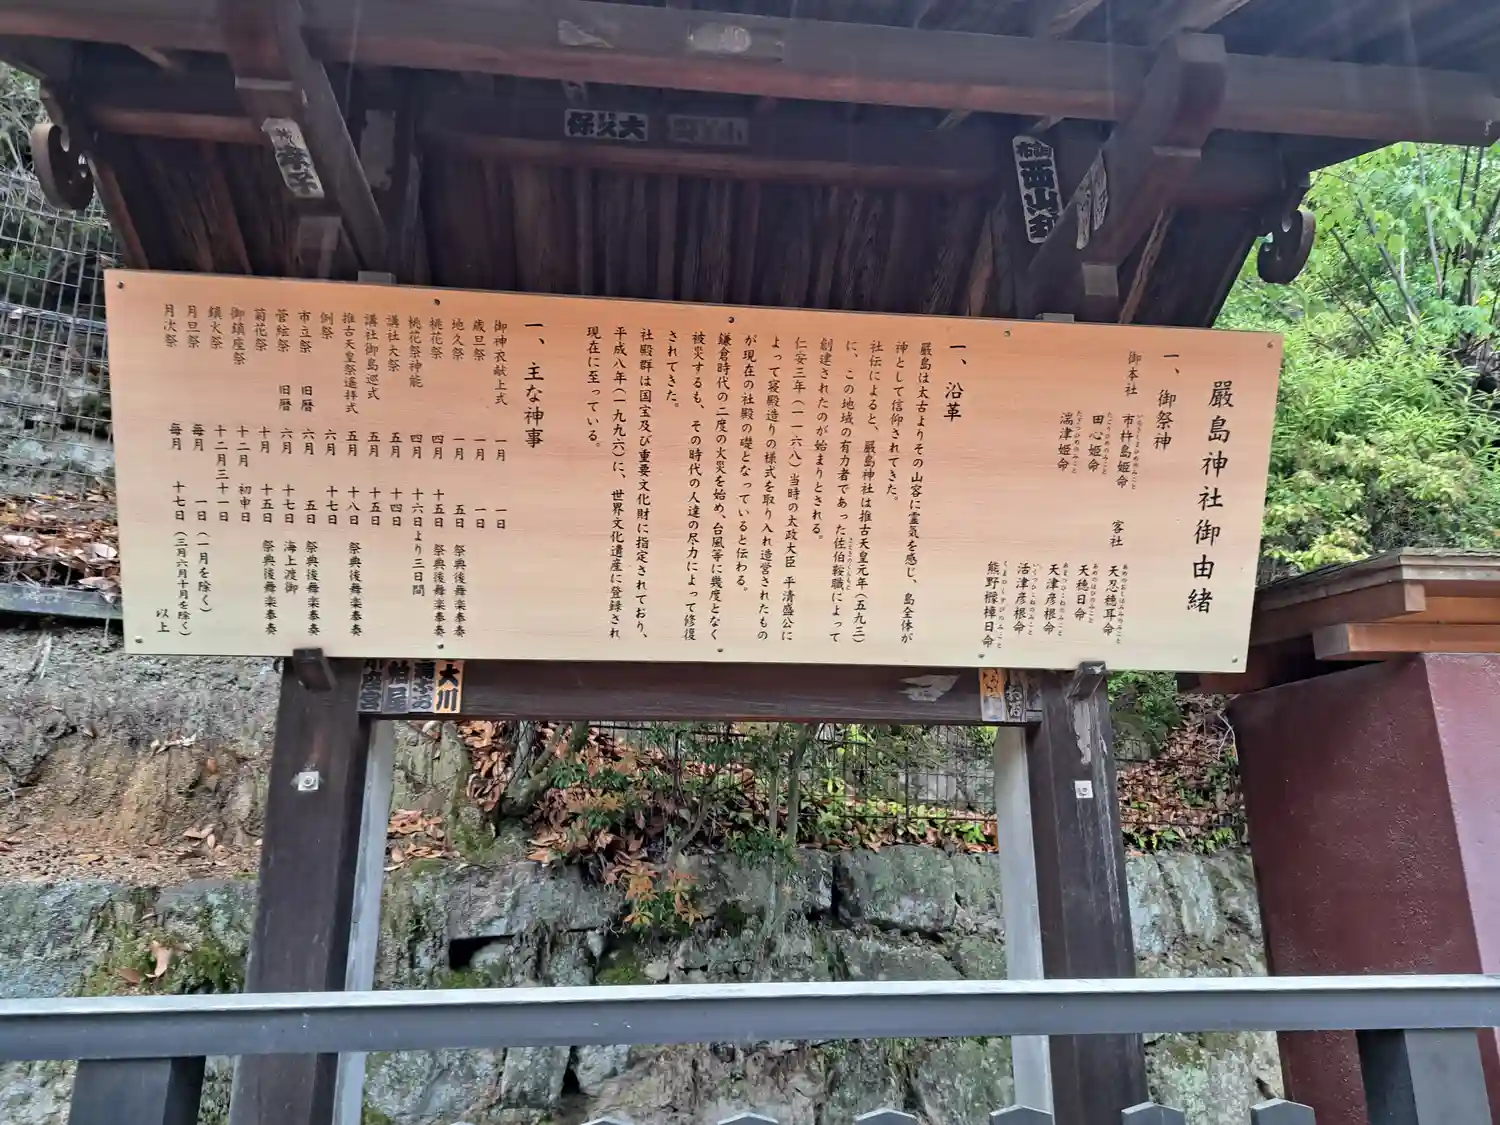 嚴島神社御由緒
一、御祭神
御本社 市杵島姫命
田心姫命
湍津姫命
客社 天忍穂耳命
天穂日命
天津彦根命
活津彦根命
熊野櫲樟日命
一、沿革
嚴島は太古よりその山容に霊気を感じ、島全体が
神として信仰されてきた。
社伝によると、嚴島神社は推古天皇元年(五九三)
に、この地域の有力者であった佐伯鞍職によって
創建されたのが始まりとされる。
仁安三年(一一六八)当時の太政大臣 平清盛公に
よって寝殿造りの様式を取り入れ造営されたもの
が現在の社殿の礎となっていると伝わる。
鎌倉時代の二度の火災を始め、台風等に幾度となく
被災するも、その時代の人達の尽力によって修復
されてきた。
社殿群は国宝及び重要文化財に指定されており、
平成八年(一九九六)に、世界文化遺産に登録され
現在に至っている。
一、主な神事
御神衣献上式 一月 一日
歳旦祭 一月 一日
地久祭 一月 五日 祭典後舞楽奉奏
桃花祭 四月 十五日 祭典後舞楽奉奏
桃花祭神能 四月 十六日より三日間
講社大祭 五月 十四日
講社御島巡式 五月 十五日
推古天皇祭遙拝式 五月 十八日 祭典後舞楽奉奏
例祭 六月 十七日
市立祭 旧暦 六月 五日 祭典後舞楽奉奏
管絃祭 旧暦 六月 十七日 海上渡御
菊花祭 十月 十五日 祭典後舞楽奉奏
御鎮座祭 十二月 初申日
鎮火祭 十二月三十一日
月旦祭 毎月 一日(一月を除く)
月次祭 毎月 十七日(三月六月十月を除く)
以上
大久保
西山
大川